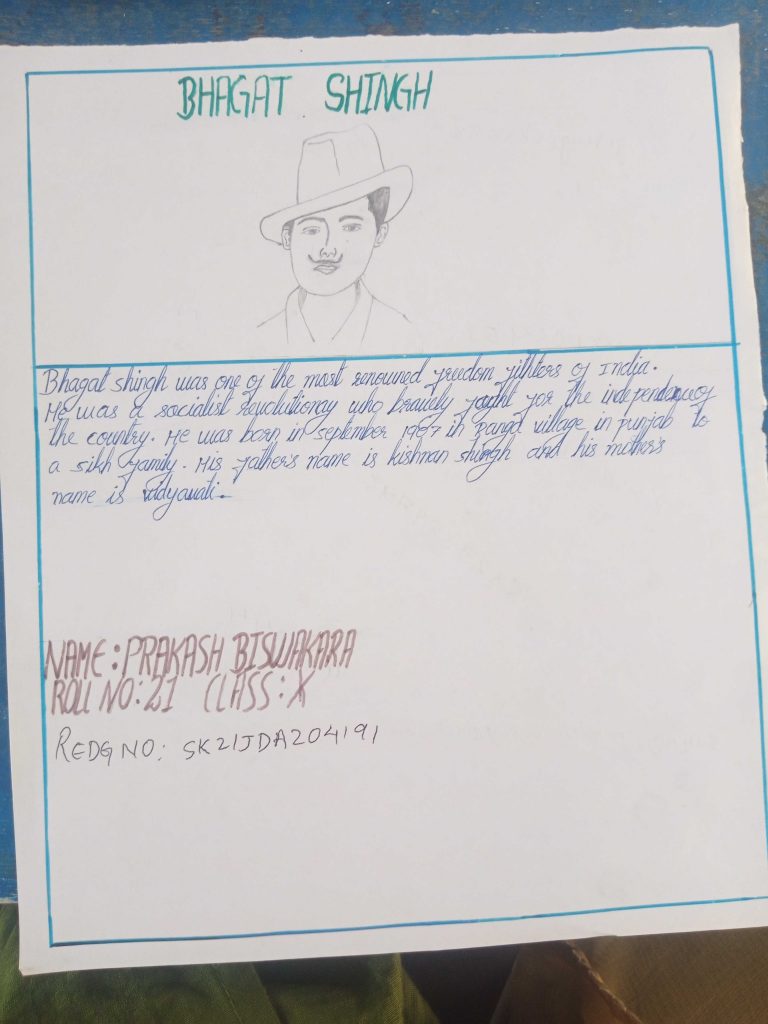 BHAGAT SHINGH
Bhagat shingh was one of the most renowned freedom fithters of India.
He was a socialist revolutionay who bravely fought for the independance of
the country. He was born in september 1907 in Banga village in punjab to
a sikh family. His father's name is kishnan shingh and his mother's
name is vidyawati.
NAME: PRAKASH BISWAKARA
ROLL NO: 21 CLASS: X
REDG NO: SK21JDA204191